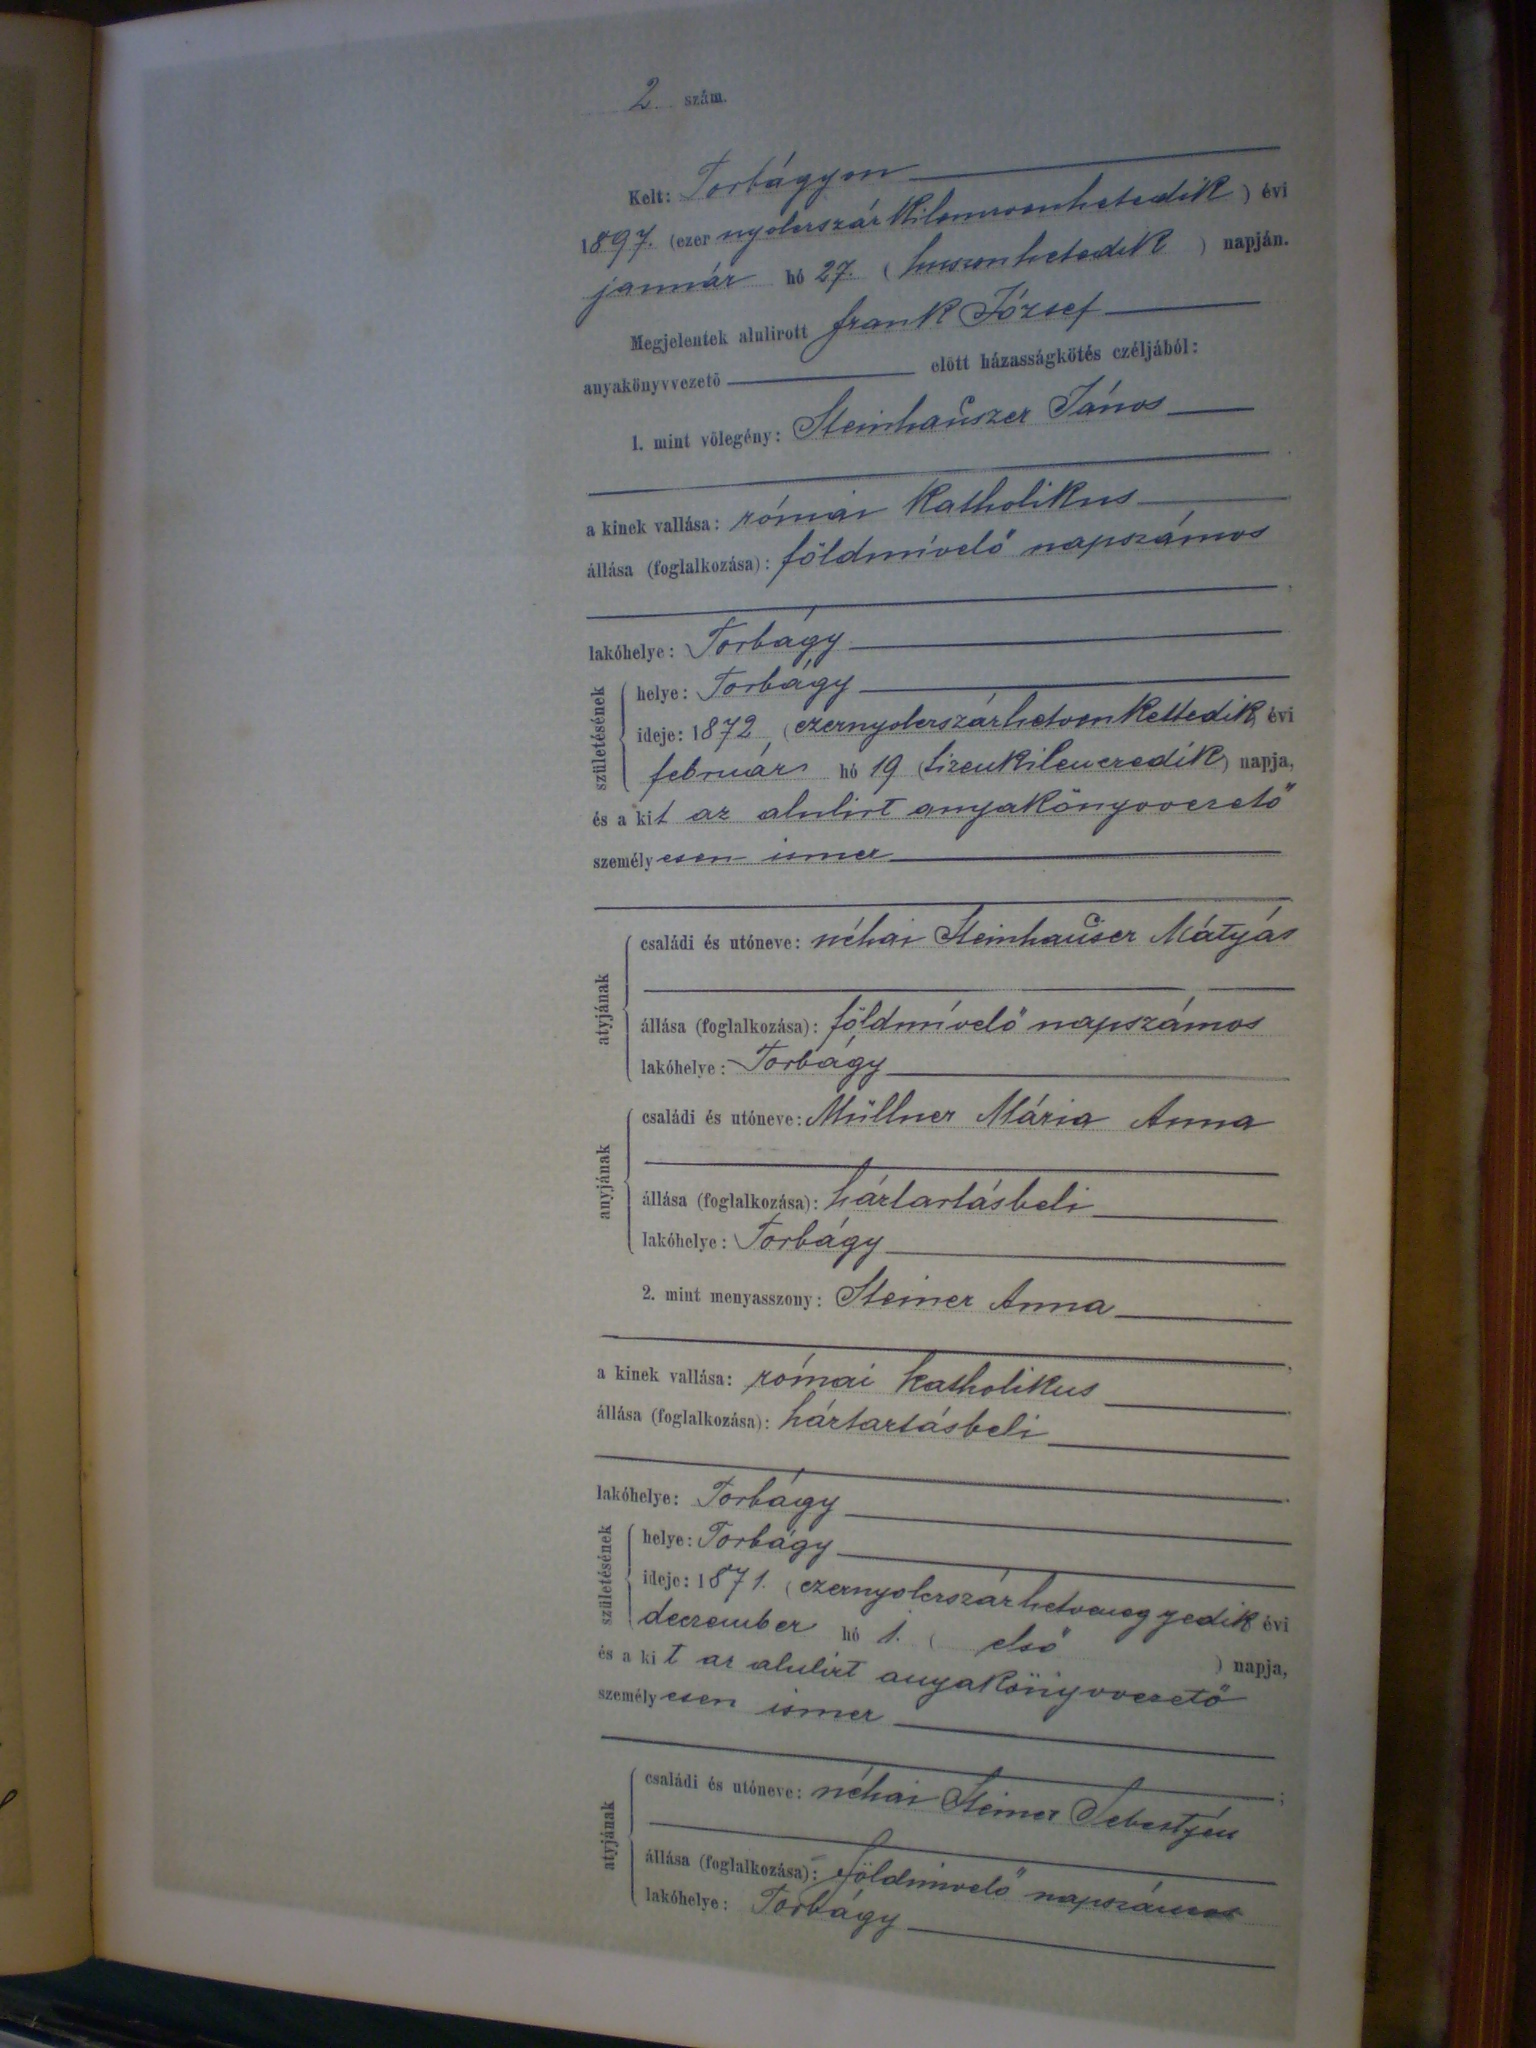 2. szám.
Kelt: Torbágyon
1897. (ezer nyolczszázkilenczvenhetedik) évi
január hó 27. (huszonhetedik) napján.
Megjelentek alulirott Frank József
anyakönyvvezető előtt házasságkötés czéljából:
1. mint vőlegény: Steinhauszer János
a kinek vallása: római katholikus
állása (foglalkozása): földmívelő napszámos
lakóhelye: Torbágy
születésének
helye: Torbágy
ideje: 1872 (ezernyolczszázhetvenkettedik) évi
február hó 19 (tizenkilenczedik) napja,
és a kit az alulírt anyakönyvvezető
személyesen ismer
atyjának
családi és utóneve: néhai Steinhauser Mátyás
állása (foglalkozása): földmívelő napszámos
lakóhelye: Torbágy
anyjának
családi és utóneve: Müllner Mária Anna
állása (foglalkozása): háztartásbeli
lakóhelye: Torbágy
2. mint menyasszony: Steiner Anna
a kinek vallása: római katholikus
állása (foglalkozása): háztartásbeli
lakóhelye: Torbágy
születésének
helye: Torbágy
ideje: 1871. (ezernyolczszázhetvenegyedik) évi
deczember hó 1. (első) napja,
és a kit az alulírt anyakönyvvezető
személyesen ismer
atyjának
családi és utóneve: néhai Steiner Sebestyén
állása (foglalkozása): földmívelő napszámos
lakóhelye: Torbágy